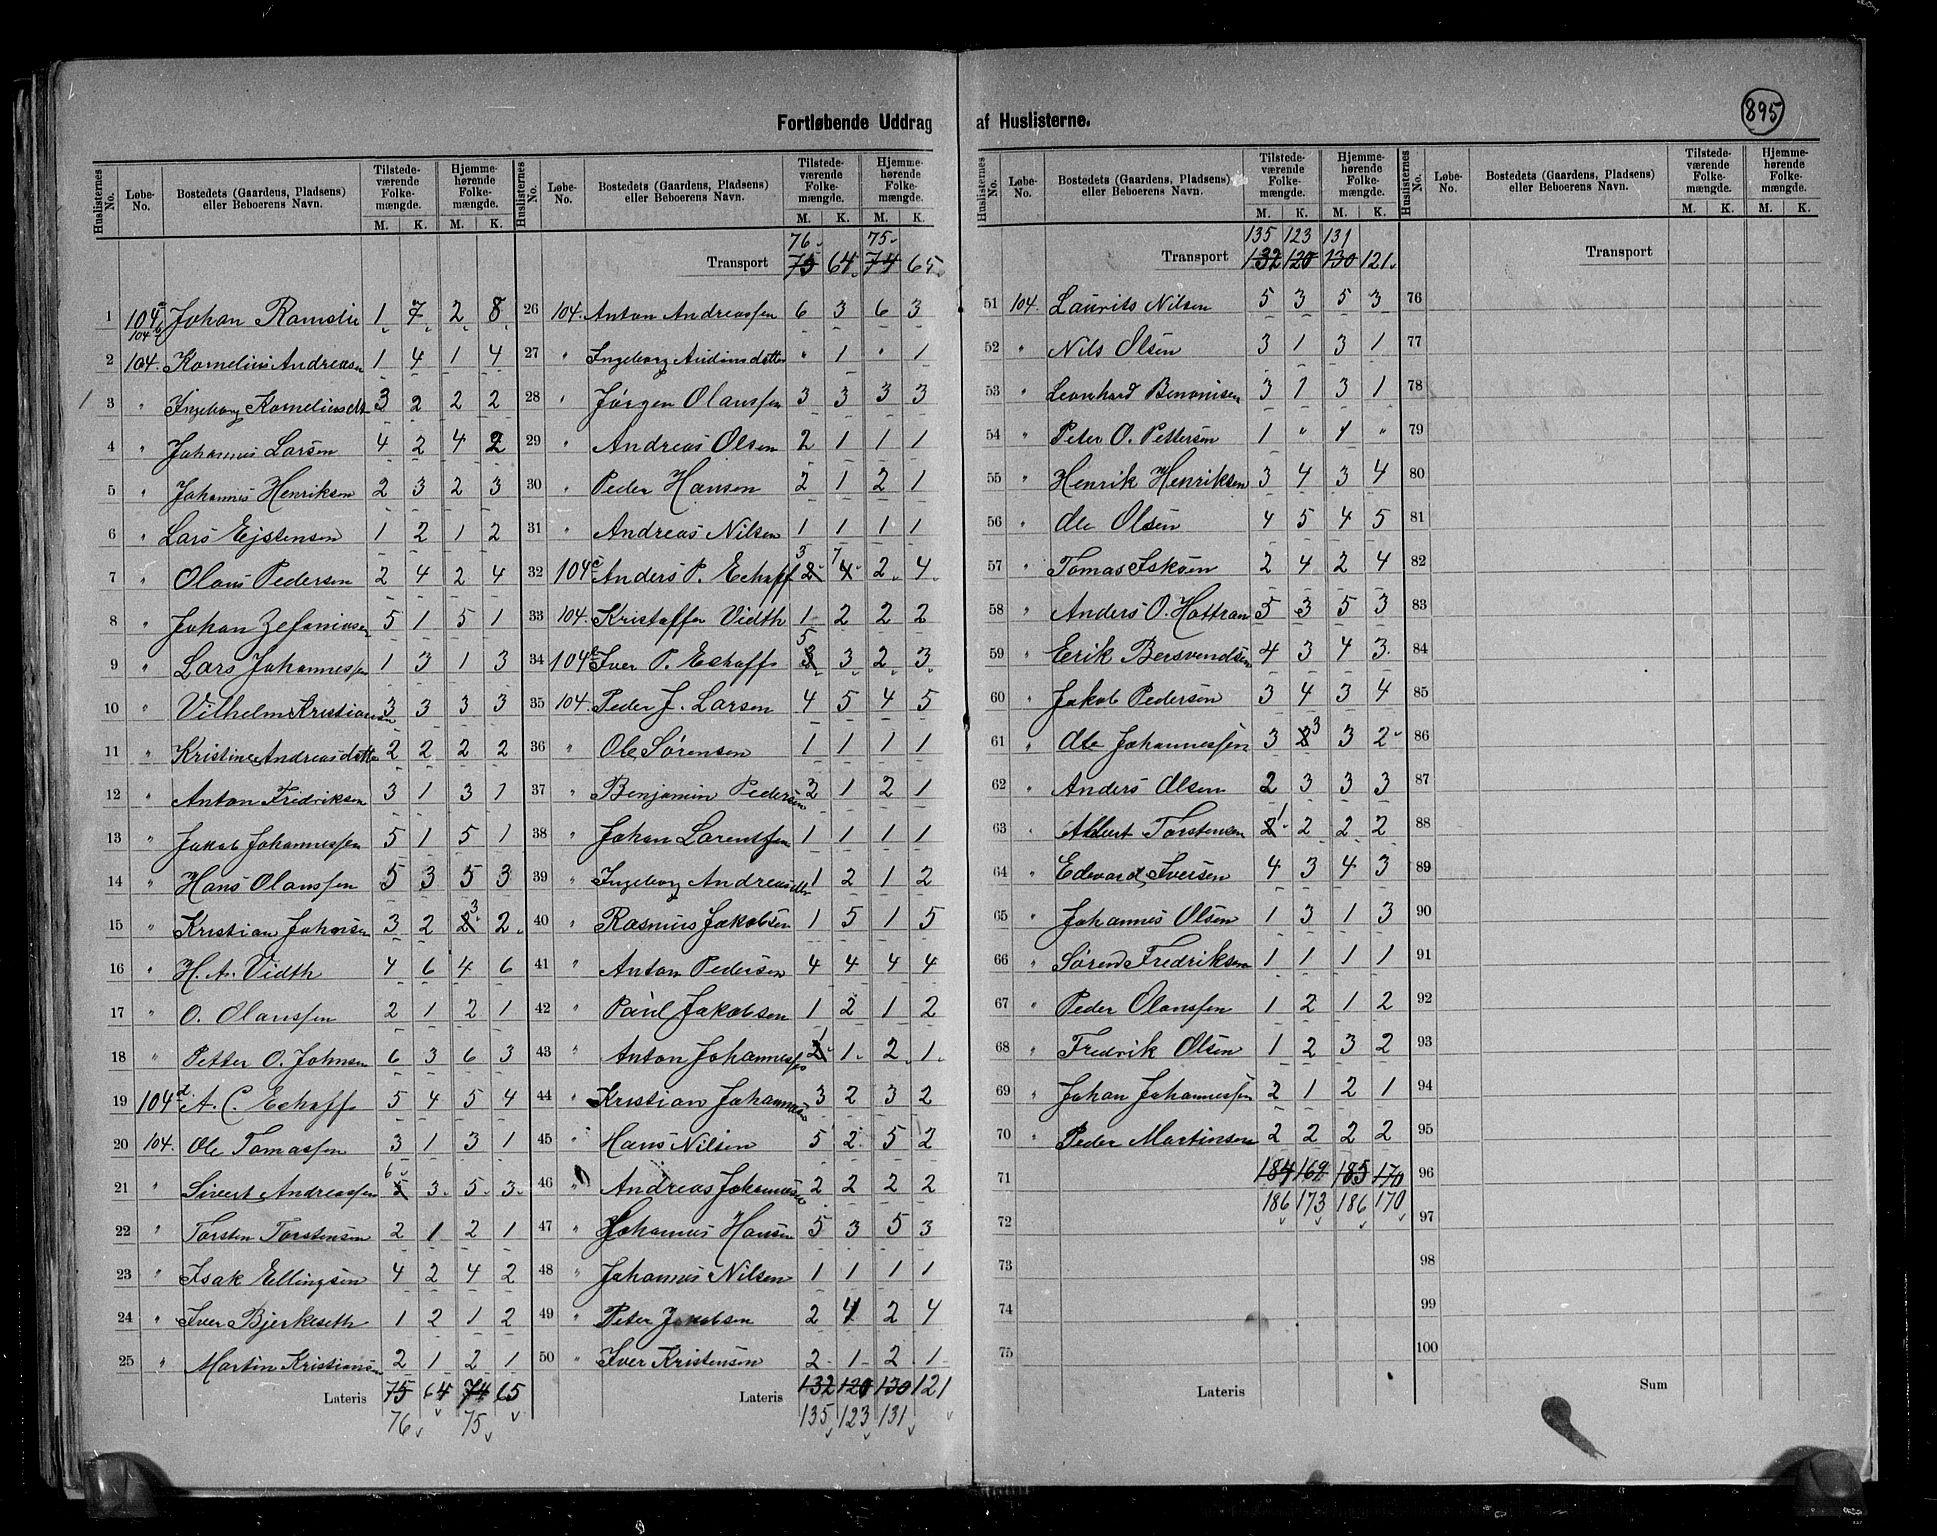 895
Fortløbende Uddrag af Huslisterne.
Huslisternes No. Løbe-No. Bostedets (Gaardens, Pladsens) eller Beboerens Navn. Tilstedeværende Folkemængde. M. K. Hjemmehørende Folkemængde. M. K.
1 104a 104b Johan Ramslie 1 7 2 8
2 104. Kornelius Andreasen 1 4 1 4
3 " Ingeborg Korneliusdtr 3 2 2 2
4 " Johannes Larsen 4 2 4 2
5 " Johannes Henriksen 2 3 2 3
6 " Lars Ejstensen 1 2 1 2
7 " Olaus Pedersen 2 4 2 4
8 " Johan Zefaniasen 5 1 5 1
9 " Lars Johannessen 1 3 1 3
10 " Vilhelm Kristiansen 3 3 3 3
11 " Kristine Andreasdatter 2 2 2 2
12 " Anton Fredriksen 3 1 3 1
13 " Jakob Johannessen 5 1 5 1
14 " Hans Olaussen 5 3 5 3
15 " Kristian Johnsen 3 2 2 3 2
16 " H. A. Vidth 4 6 4 6
17 " O. Olaussen 2 1 2 1
18 " Petter O. Johnsen 6 3 6 3
19 104d A. C. Echoff 5 4 5 4
20 104. Ole Tomassen 3 1 3 1
21 " Sivert Andreassen 5 6 3 5 3
22 " Torsten Torstensen 2 1 2 1
23 " Isak Ellingsen 4 2 4 2
24 " Iver Bjerkeseth 1 2 1 2
25 " Martin Kristiansen 2 1 2 1
Lateris 75 64 74 65
76 75
Huslisternes No. Løbe-No. Bostedets (Gaardens, Pladsens) eller Beboerens Navn. Tilstedeværende Folkemængde. M. K. Hjemmehørende Folkemængde. M. K.
76 75
Transport 75 64 74 65
26 104. Anton Andreassen 6 3 6 3
27 " Ingeborg Audinsdatter " 1 " 1
28 " Jørgen Olaussen 3 3 3 3
29 " Andreas Olsen 2 1 1 1
30 " Peder Hansen 2 1 2 1
31 " Andreas Nilsen 1 1 1 1
32 104c Anders P. Echoff 2 3 4 7 2 4
33 104. Kristoffer Vidth 1 2 2 2
34 104b Iver P. Echoff 3 5 3 2 3
35 104. Peder J. Larsen 4 5 4 5
36 " Ole Sørensen 1 1 1 1
37 " Benjamin Pedersen 2 1 2 1
38 " Johan Lorentsen 1 1 1 1
39 " Ingeborg Andreasdtr 1 2 1 2
40 " Rasmus Jakobsen 1 5 1 5
41 " Anton Pedersen 4 4 4 4
42 " Paul Jakobsen 1 2 1 2
43 " Anton Johannessen 2 1 1 2 1
44 " Kristian Johannesen 3 2 3 2
45 " Hans Nilsen 5 2 5 2
46 " Andreas Johannesen 2 2 2 2
47 " Johannes Hansen 5 3 5 3
48 " Johannes Nilsen 1 1 1 1
49 " Peter Jakobsen 2 4 2 4
50 " Iver Kristensen 2 1 2 1
Lateris 132 120 130 121
135 123 131
Huslisternes No. Løbe-No. Bostedets (Gaardens, Pladsens) eller Beboerens Navn. Tilstedeværende Folkemængde. M. K. Hjemmehørende Folkemængde. M. K.
135 123 131
Transport 132 120 130 121
51 104. Laurits Nilsen 5 3 5 3
52 " Nils Olsen 3 1 3 1
53 " Leonhard Benonisen 3 1 3 1
54 " Peter O. Pettersen 1 " 1 "
55 " Henrik Henriksen 3 4 3 4
56 " Ole Olsen 4 5 4 5
57 " Tomas Iskoen 2 4 2 4
58 " Anders O. Hattran 5 3 5 3
59 " Erik Bersvendsen 4 3 4 3
60 " Jakob Pedersen 3 4 3 4
61 " Ole Johannessen 3 2 3 3 2
62 " Anders Olsen 2 3 3 3
63 " Albert Torstensen 2 1 2 2 2
64 " Edevard Iversen 4 3 4 3
65 " Johannes Olsen 1 3 1 3
66 " Søren Fredriksen 1 1 1 1
67 " Peder Olaussen 1 2 1 2
68 " Fredrik Olsen 1 2 3 2
69 " Johan Johannessen 2 1 2 1
70 " Peder Martinsen 2 2 2 2
71 184 169 185 170
72 186 173 186 170
73
74
75
Lateris
Huslisternes No. Løbe-No. Bostedets (Gaardens, Pladsens) eller Beboerens Navn. Tilstedeværende Folkemængde. M. K. Hjemmehørende Folkemængde. M. K.
Transport
76
77
78
79
80
81
82
83
84
85
86
87
88
89
90
91
92
93
94
95
96
97
98
99
100
Sum